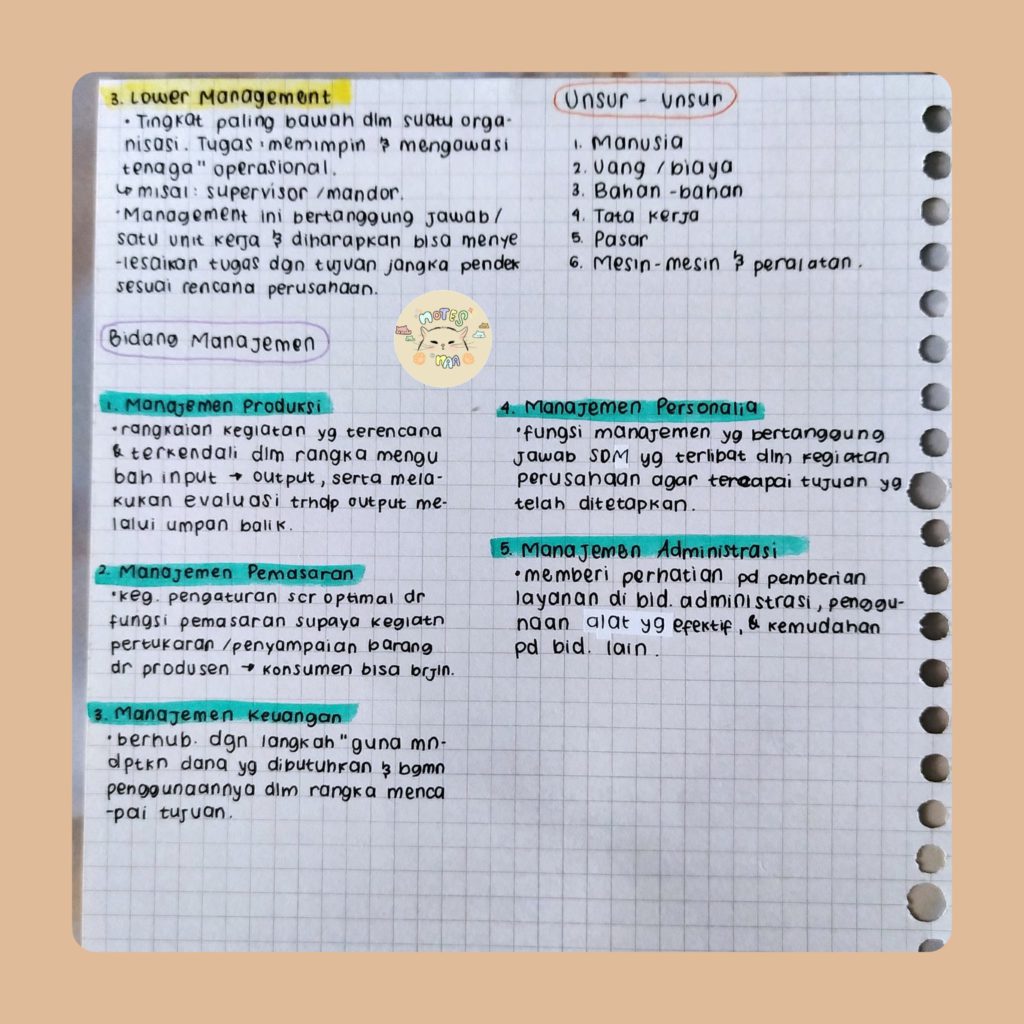 3. Lower Management
• Tingkat paling bawah dlm suatu orga-
nisasi. Tugas : memimpin & mengawasi
tenaga" operasional.
↳ misal : supervisor / mandor.
• Management ini bertanggung jawab /
satu unit kerja & diharapkan bisa menye
-lesaikan tugas dgn tujuan jangka pendek
sesuai rencana perusahaan.
Unsur - unsur
1. Manusia
2. Uang / biaya
3. Bahan - bahan
4. Tata kerja
5. Pasar
6. Mesin - mesin & peralatan.
NOTES
MAA
Bidang Manajemen
1. Manajemen Produksi
• rangkaian kegiatan yg terencana
& terkendali dlm rangka mengu
bah input → output, serta mela-
kukan evaluasi trhdp output me-
lalui umpan balik.
2. Manajemen Pemasaran
• keg. pengaturan scr optimal dr
fungsi pemasaran supaya kegiatn
pertukaran / penyampaian barang
dr produsen → konsumen bisa brjln.
3. Manajemen Keuangan
• berhub. dgn langkah" guna mn-
dptkn dana yg dibutuhkan & bgmn
penggunaannya dlm rangka menca
-pai tujuan.
4. Manajemen Personalia
• fungsi manajemen yg bertanggung
jawab SDM yg terlibat dlm kegiatan
perusahaan agar tercapai tujuan yg
telah ditetapkan.
5. Manajemen Administrasi
• memberi perhatian pd pemberian
layanan di bid. administrasi, penggu-
naan alat yg efektif, & kemudahan
pd bid. lain.